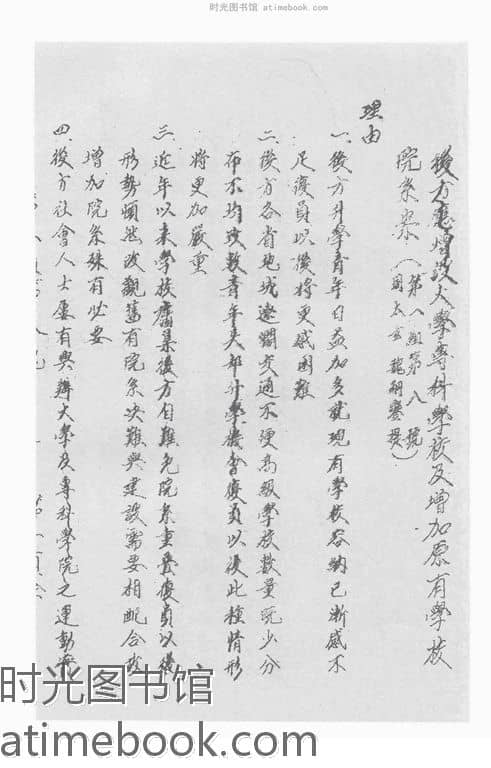 时光图书馆 atimebook.com
後方應增設大學專科學校及增加原有學校
院系案（第八組第八號
周太玄魏嗣鑾提）
理由
一、後方升學青年日益加多就現有學校容納已漸感不
足復員以後將更感困難
二、後方各省地域遼闊交通不便高級學校數量既少分
布不均致數青年失却升學機會復員以後此種情形
將更加嚴重
三、近年以來學校麕集後方自難免院系重疊復員以後
形勢頓然改觀舊有院系決難與建設需要相配合故
增加院系殊有必要
四、後方社會人士屢有興辦大學及專科學院之運動
时光图书馆
atimebook.com